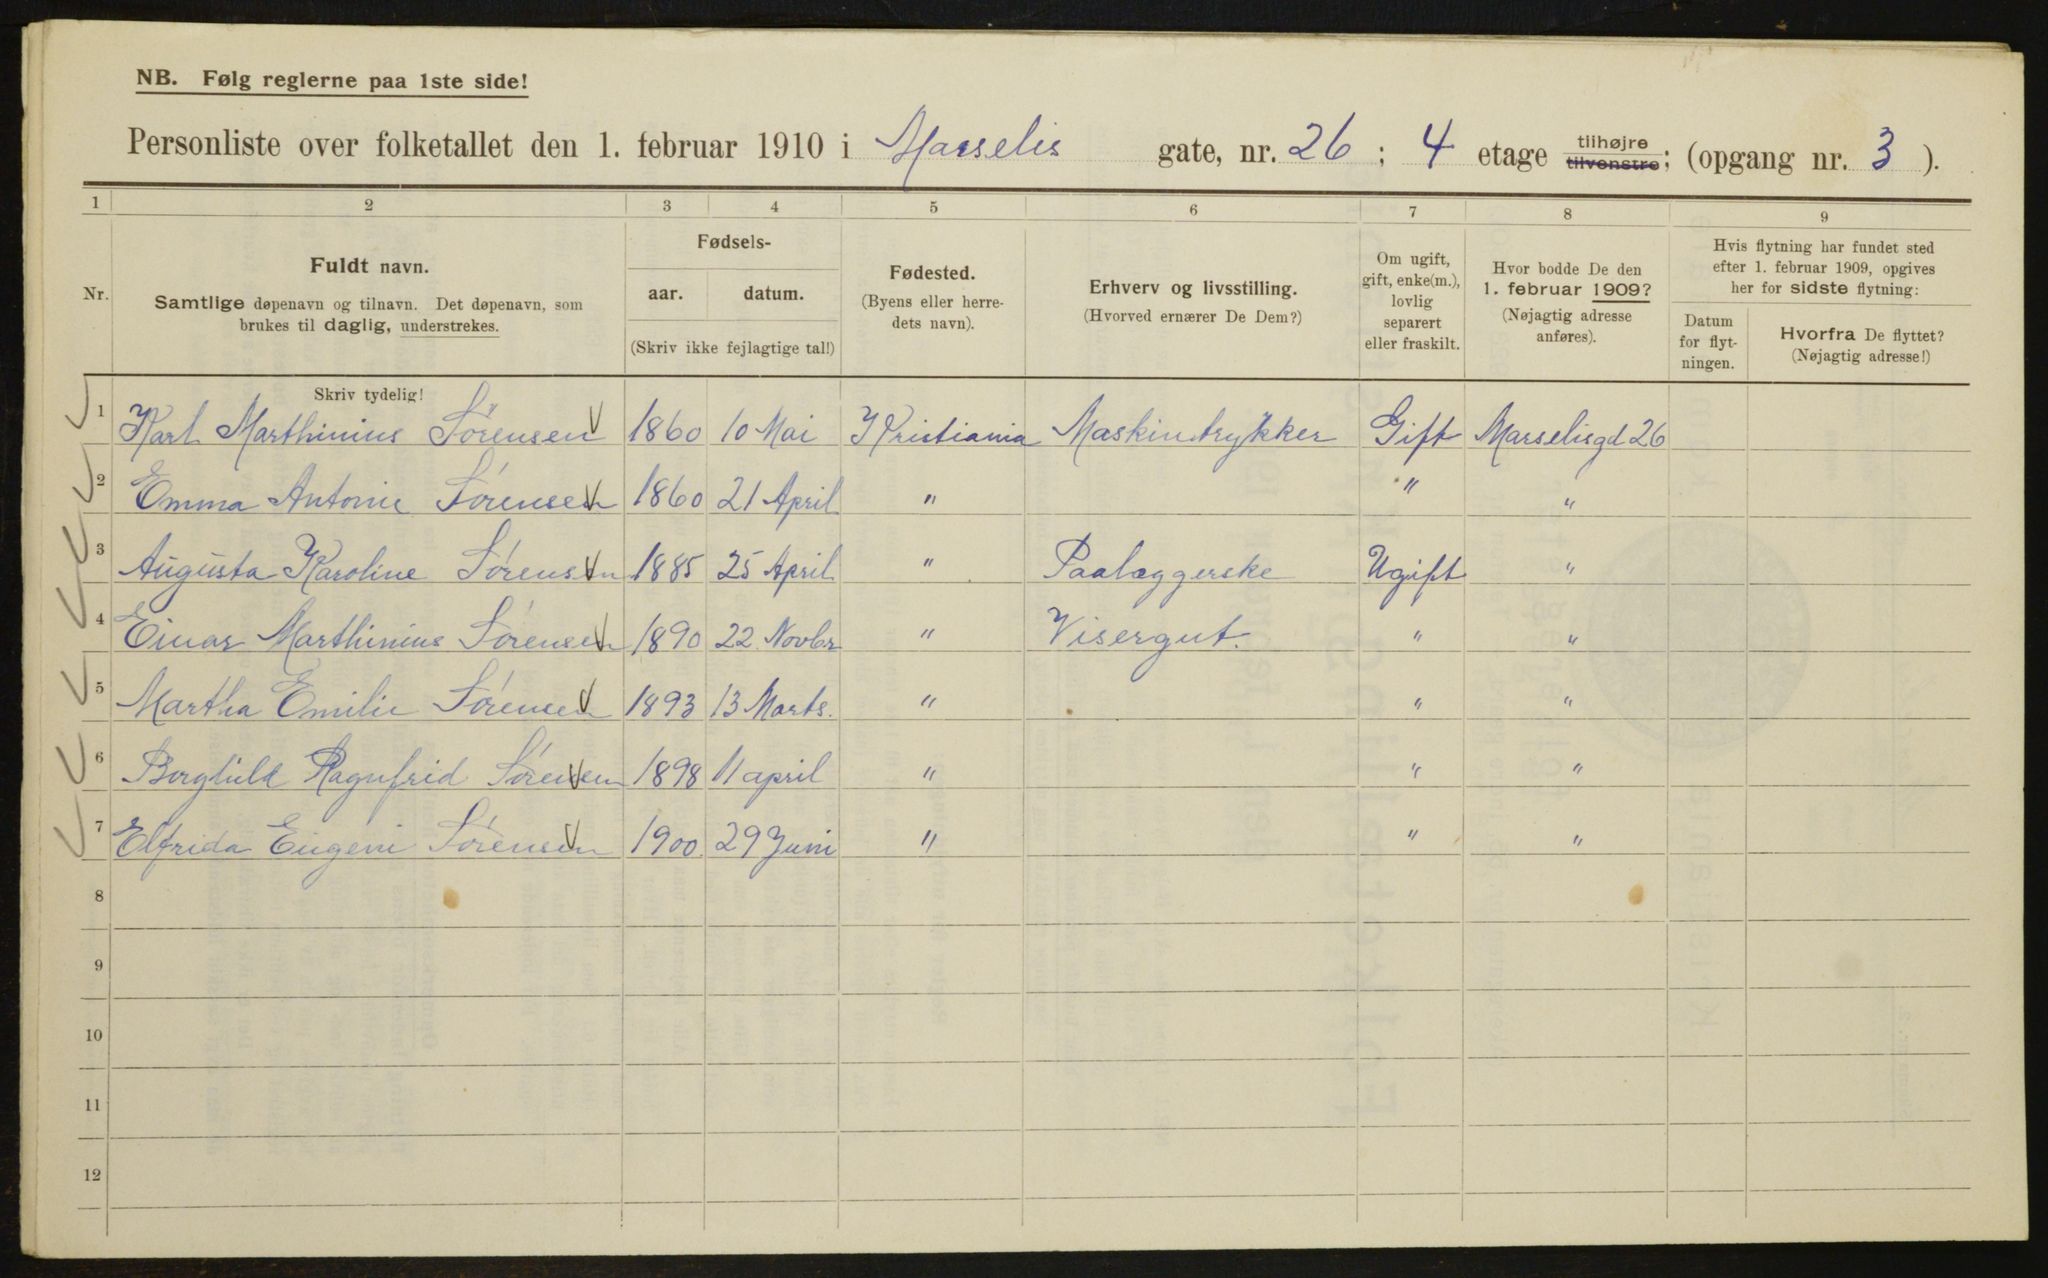 NB. Følg reglerne paa 1ste side!
Personliste over folketallet den 1. februar 1910 i Marselis gate, nr. 26 ; 4 etage tilhøjre tilvenstre; (opgang nr. 3 ).
1 2 3 4 5 6 7 8 9
Nr.
Fuldt navn.
Samtlige døpenavn og tilnavn. Det døpenavn, som
brukes til daglig, understrekes.
Skriv tydelig!
Fødsels-
aar. datum.
(Skriv ikke fejlagtige tal!)
Fødested.
(Byens eller herre-
dets navn).
Erhverv og livsstilling.
(Hvorved ernærer De Dem?)
Om ugift,
gift, enke(m.),
lovlig
separert
eller fraskilt.
Hvor bodde De den
1. februar 1909?
(Nøjagtig adresse
anføres).
Hvis flytning har fundet sted
efter 1. februar 1909, opgives
her for sidste flytning:
Datum
for flyt-
ningen.
Hvorfra De flyttet?
(Nøjagtig adresse!)
1 Karl Marthinius Sörensen 1860 10 Mai Kristiania Maskintrykker Gift Marselisgd 26
2 Emma Antonie Sörensen 1860 21 April " " "
3 Augusta Karoline Sörensen 1885 25 April " Paalæggerske Ugift "
4 Einar Marthinius Sörensen 1890 22 Novbr " Visergut. " "
5 Martha Emilie Sörensen 1893 13 Marts. " " "
6 Borghild Ragnfrid Sörensen 1898 11 april " " "
7 Elfrida Eugeni Sörensen 1900 29 Juni " " "
8
9
10
11
12